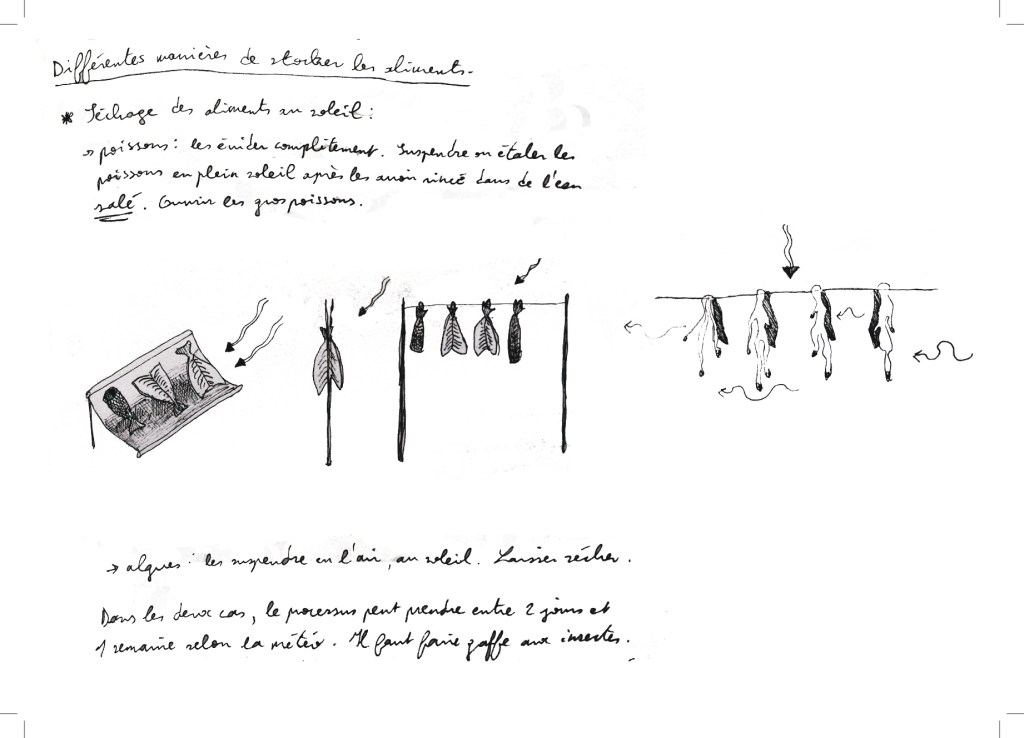 Différentes manières de stocker les aliments.
* Séchage des aliments au soleil :
→ poissons : les évider complètement. Suspendre ou étaler les
poissons en plein soleil après les avoir rincé dans de l'eau
salé. Ouvrir les gros poissons.
→ algues : les suspendre en l'air, au soleil. Laisser sécher.
Dans les deux cas, le processus peut prendre entre 2 jours et
1 semaine selon la météo. Il faut faire gaffe aux insectes.